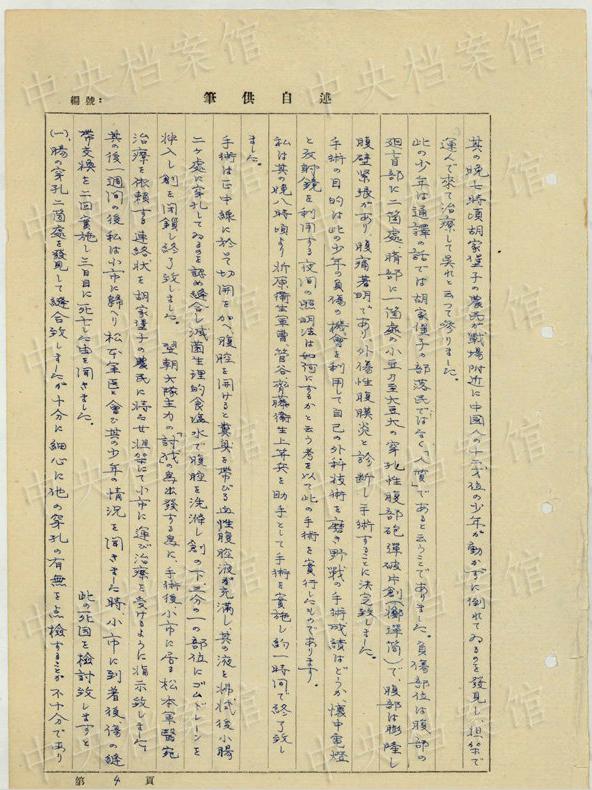 編號:
筆供自述
其の晩七時頃胡家堡子の農民が戦場附近に中国人の十三才位の少年が動かずに倒れてゐるのを発見し、担架で
運んで来て治療して呉れと云って参りました。
此の少年は通譯の話では胡家堡子の部落民ではなく「人質」であると云ふことでありました。負傷部位は腹部の
廻盲部に二箇處、臍部に一箇處の小豆乃至大豆大の穿孔性腹部砲彈破片創(擲彈筒)で、腹部は膨隆し
腹壁緊張があり、腹痛著明であり外傷性腹膜炎と診断し手術することに決定致しました。
手術の目的は此の少年の負傷の機會を利用して自己の外科技術を磨き野戰の手術成績はどうか懐中電燈
と反射鏡を利用する夜间の照明法は如何にするかと云う考を以て此の手術を実行したものであります。
私は其の晩八時頃より折原衛生軍曹、菅谷、齊藤衛生上等兵を助手として手術を実施し約一時间で終了致し
ました。
手術は正中線に於て切開を加へ腹腔を開けると糞臭を帯びる血性腹腔液が充満し、其の液を排除後小腸
二ヶ處に穿孔してゐるを認め縫合し滅菌生理的食塩水で腹腔を洗滌し創の下三分の一の部位にゴムドレーンを
挿入し創を閉鎖し終了致しました。翌朝大隊主力の「討伐」の為出發する為に、手術後小市に居る松本軍醫宛
治療を依頼する連絡状を胡家堡子の農民に持たせ担架にて小市に運び治療を受けるように指示致しました。
其の後一週间の後私は小市に歸へり松本軍医と會ひ其の少年の情況を聞きました時、小市に到着後傷の繃
帯交換を二回実施し三日目に死亡した由を聞きました。此の死因を検討致しますと
(一)、腸の穿孔二箇處を發見して縫合致しましたが十分に細心に他の穿孔の有無を点検することが不十分であり
第4頁
中央档案馆